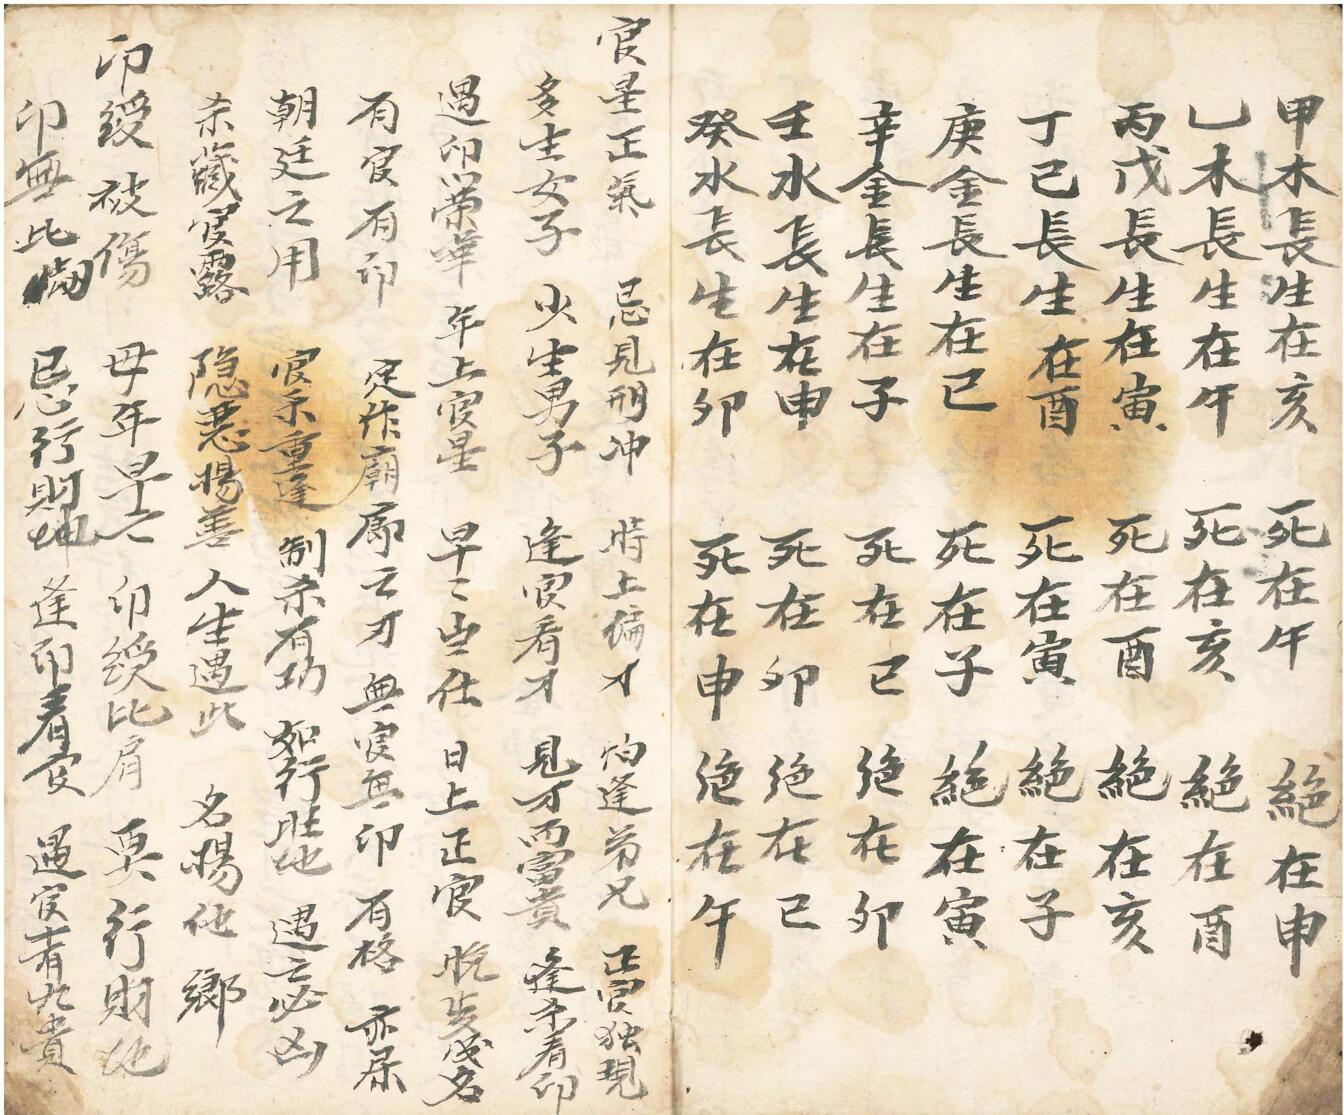 甲木長生在亥 死在午 絕在申
乙木長生在午 死在亥 絕在酉
丙戊長生在寅 死在酉 絕在亥
丁己長生在酉 死在寅 絕在子
庚金長生在巳 死在子 絕在寅
辛金長生在子 死在巳 绝在卯
壬水長生在申 死在卯 绝在巳
癸水長生在卯 死在申 绝在午
官星正氣 忌見刑冲 時上偏才 怕逢弟兄 正官独現
多生女子 少生男子 逢官看才 見才而富貴 逢杀看印
遇印榮華 年上官星 早々出仕 日上正官 晚歩成名
有官有印 定作廟廊之才 無官無印 有格 亦屎
朝廷之用 官杀重逢 制杀有功 如行旺地 遇之必凶
杀藏官露 隐悪揚善 人生遇此 名揚他鄉
印綬被傷 母年早亡 印綬比肩 喜行財地
印無此 忌行財地 逢印看官 遇官者九貴